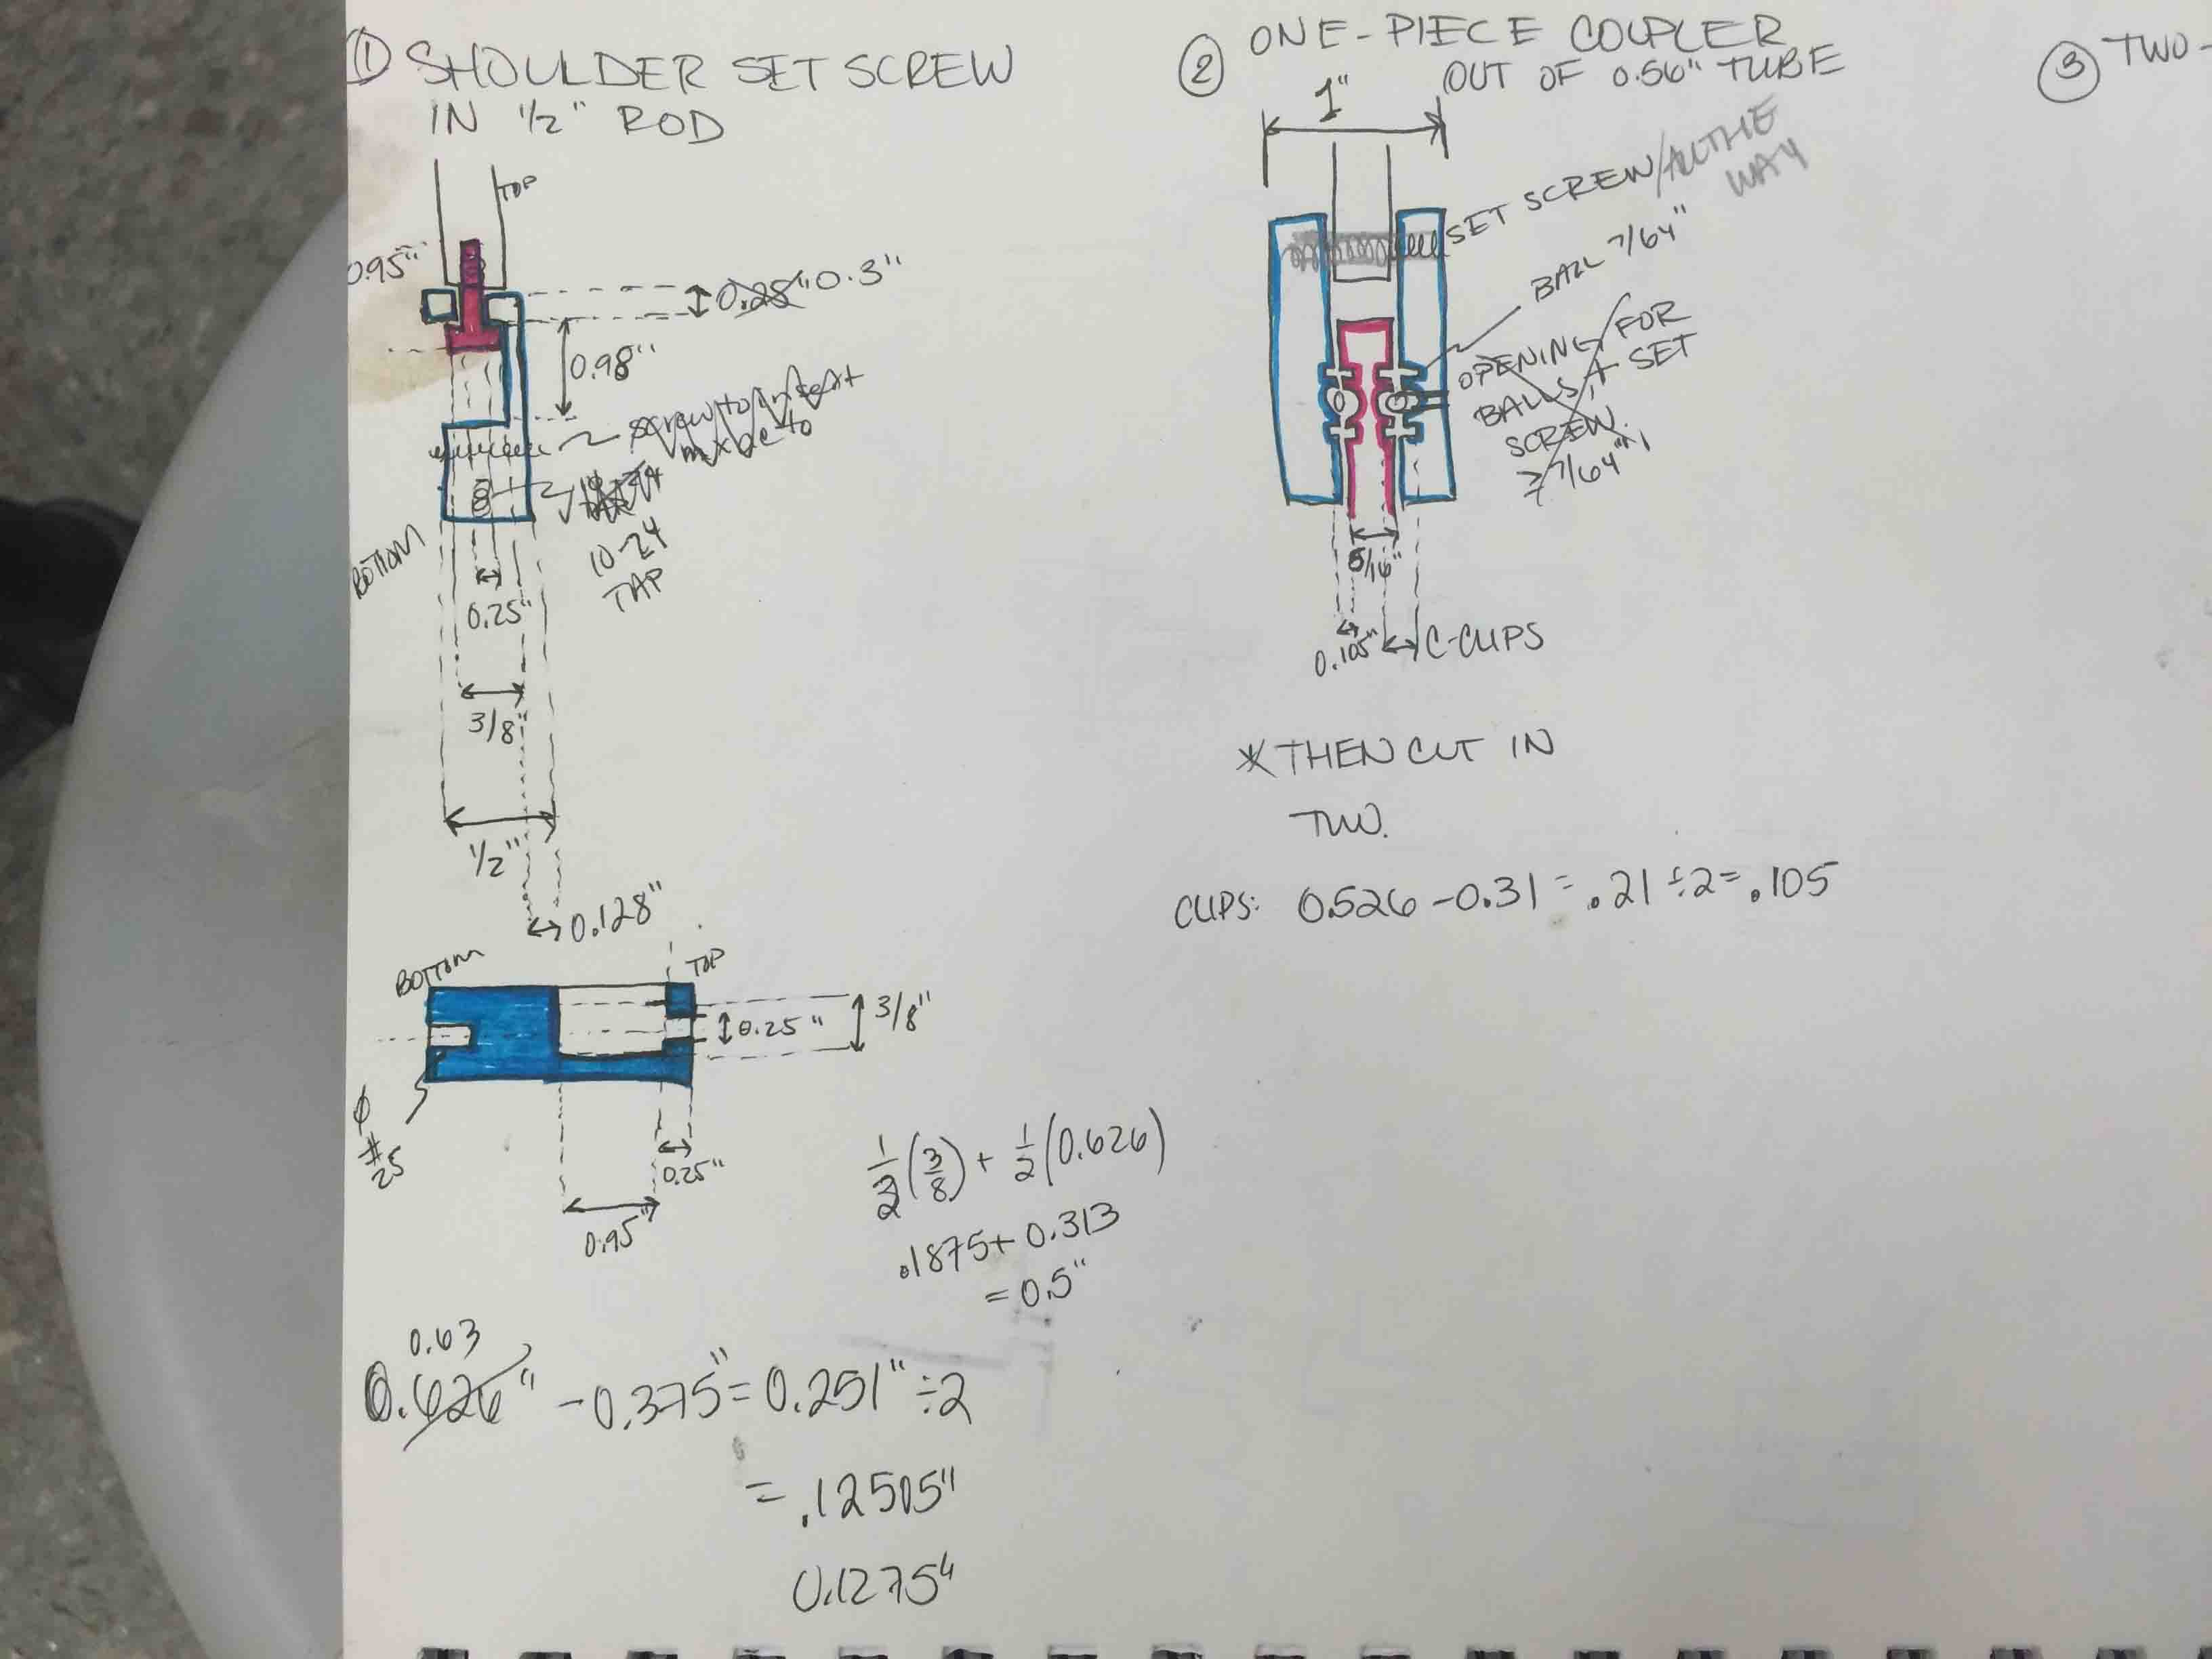 ① SHOULDER SET SCREW
IN 1/2" ROD
TOP
0.95"
0.25" 0.3"
0.98"
screw to
10-24
TAP
BOTTOM
0.25"
3/8"
1/2"
0.128"
BOTTOM
TOP
0.25"
3/8"
φ
#25
0.25"
0.95"
1/2 (3/8) + 1/2 (0.626)
.1875 + 0.313
= 0.5"
0.63
0.626" - 0.375" = 0.251" ÷2
= .12505"
0.1275"
② ONE-PIECE COUPLER
OUT OF 0.56" TUBE
1"
SET SCREW/ALL THE
WAY
BALL 7/64"
OPENING FOR
BALLS + SET
SCREW.
≥7/64"
5/16"
0.105"
C-CLIPS
* THEN CUT IN
TWO.
CLIPS: 0.526 - 0.31 = .21 ÷ 2 = .105
③ TWO-